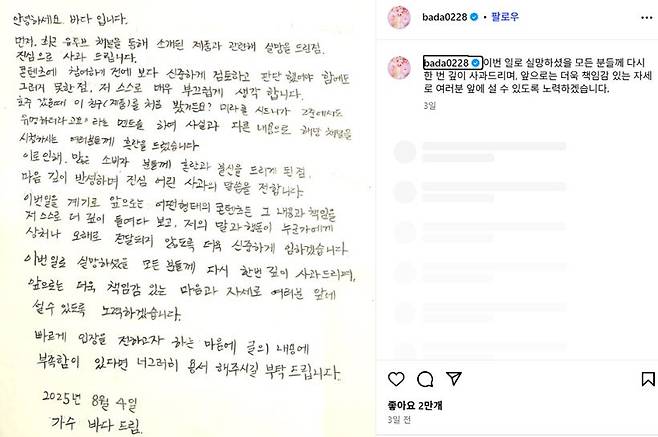 안녕하세요 바다 입니다.
먼저, 최근 유튜브 채널을 통해 소개된 제품과 관련해 실망을 드린점,
진심으로 사과 드립니다.
콘텐츠에 참여하기 전에 보다 신중하게 검토하고 판단 했어야 함에도
그러지 못한 점, 저 스스로 매우 부끄럽게 생각 합니다.
호주 갔을때 이 (제품)을 처음 봤거든요? 시드니가 2준에서도
유명하더라고요" 라는 멘트를 하여 사실과 다른 내용으로 해당 채널을
시청하시는 여러분들께 혼란을 드렸습니다
이로 인해, 많은 소비자 분들께 혼란과 불신을 드리게 된점
마음 깊이 반성하며 진심 어린 사과의 말씀을 전합니다.
이번일을 계기로 앞으로는 어떤형태의 콘텐츠든 그 내용과 책임을
저 스스로 더 깊이 들여다 보고, 저의 말과 행동이 누군가에게
상처나 오해로 전달되지 않도록 더욱 신중하게 임하겠습니다
이번일로 실망하셨을 모든 분들께 다시 한번 깊이 사과드리며,
앞으로는 더욱 책임감 있는 마음과 자세로 여러분 앞에
설수 있도록 노력하겠습니다.
빠르게 입장을 전하고자 하는 마음에 글의 내용에
부족함이 있다면 너그러히 용서 해주시길 부탁 드립니다.
2025년 8월 4일
가수 바다 드림.
bada0228 • 팔로우
bada0228 이번 일로 실망하셨을 모든 분들께 다시
한 번 깊이 사과드리며, 앞으로는 더욱 책임감 있는 자세
로 여러분 앞에 설 수 있도록 노력하겠습니다.
3일
좋아요 2만개
3일 전